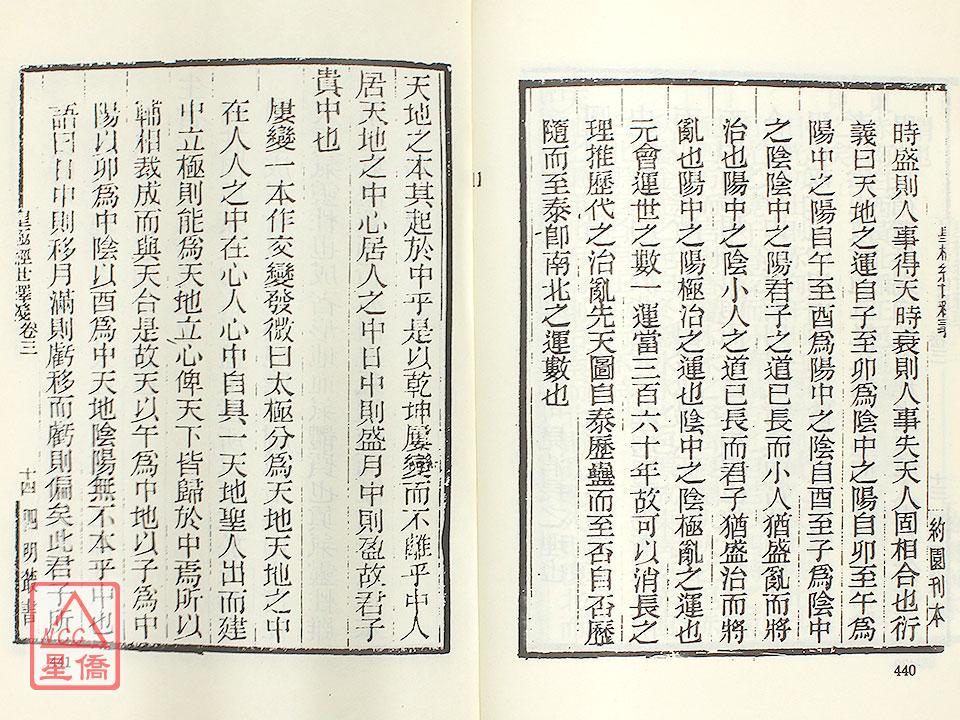 皇極經世釋義
約園刊本
時盛則人事得天時衰則人事失天人固相合也衍
義曰天地之運自子至卯爲陰中之陽自卯至午爲
陽中之陽自午至酉爲陽中之陰自酉至子爲陰中
之陰陰中之陽君子之道已長而小人猶盛亂而將
治也陽中之陰小人之道已長而君子猶盛治而將
亂也陽中之陽極治之運也陰中之陰極亂之運也
元會運世之數一運當三百六十年故可以消長之
理推歷代之治亂先天圖自泰歷蠱而至否自否歷
隨而至泰卽南北之運數也
440
天地之本其起於中乎是以乾坤屢變而不離乎中人
居天地之中心居人之中日中則盛月中則盈故君子
貴中也
屢變一本作交變發微曰太極分爲天地天地之中
在人人之中在心人心中自具一天地聖人出而建
中立極則能爲天地立心俾天下皆歸於中焉所以
輔相裁成而與天合是故天以午爲中地以子爲中
陽以卯爲中陰以酉爲中天地陰陽無不本乎中也
語曰日中則移月滿則虧移而虧則偏矣此君子所
皇極經世釋義卷三
十四
四明叢書
441
NCC
星僑